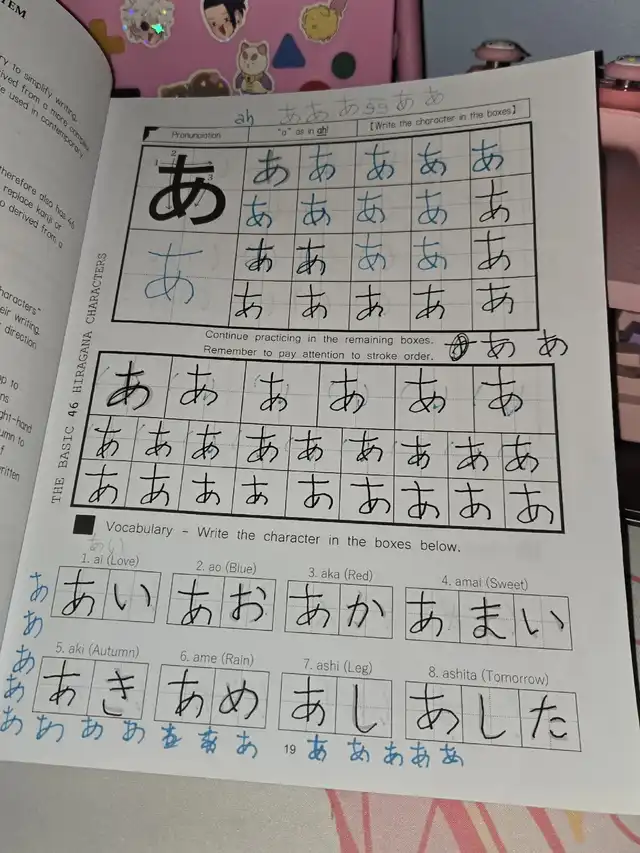 TEM
ry to simplify writing.
rived from a more complex
e used in contemporary
herefore also has 46
replace kanji or
o derived from a
haracters"
eir writing,
direction
p to
ns
ght-hand
umn to
f
written
THE BASIC 46 HIRAGANA CHARACTERS
ah あ あ あ あ あ
Pronunciation "a" as in ah! 【Write the character in the boxes】
1 2 3
あ あ あ あ あ あ
あ あ あ あ あ
あ あ あ あ あ あ
あ あ あ あ あ
Continue practicing in the remaining boxes.
Remember to pay attention to stroke order. あ あ
あ あ あ あ あ あ
あ あ あ あ あ あ あ あ あ
あ あ あ あ あ あ あ あ あ
Vocabulary - Write the character in the boxes below.
あい
1. ai (Love) 2. ao (Blue) 3. aka (Red) 4. amai (Sweet)
あい あお あか あまい
5. aki (Autumn) 6. ame (Rain) 7. ashi (Leg) 8. ashita (Tomorrow)
あき あめ あし あした
あ
あ
あ
あ
あ あ あ あ あ 19 あ あ あ あ あ